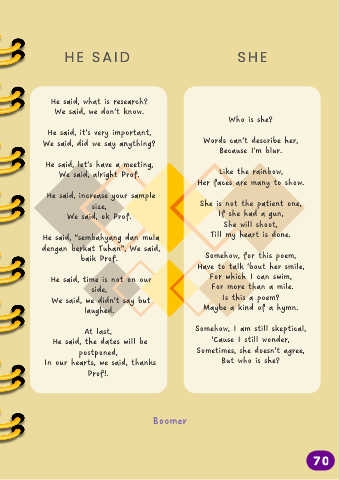 HE SAID
He said, what is research?
We said, we don't know.
He said, it's very important,
We said, did we say anything?
He said, let's have a meeting,
We said, alright Prof.
He said, increase your sample
size,
We said, ok Prof.
He said, "sembahyang dan mula
dengan berkat Tuhan", We said,
baik Prof.
He said, time is not on our
side,
We said, we didn't say but
laughed.
At last,
He said, the dates will be
postponed,
In our hearts, we said, thanks
Prof!.
SHE
Who is she?
Words can't describe her,
Because I'm blur.
Like the rainbow,
Her faces are many to show.
She is not the patient one,
If she had a gun,
She will shoot,
Till my heart is done.
Somehow, for this poem,
Have to talk 'bout her smile,
For which I can swim,
For more than a mile.
Is this a poem?
Maybe a kind of a hymn.
Somehow, I am still skeptical,
'Cause I still wonder,
Sometimes, she doesn't agree,
But who is she?
Boomer
70